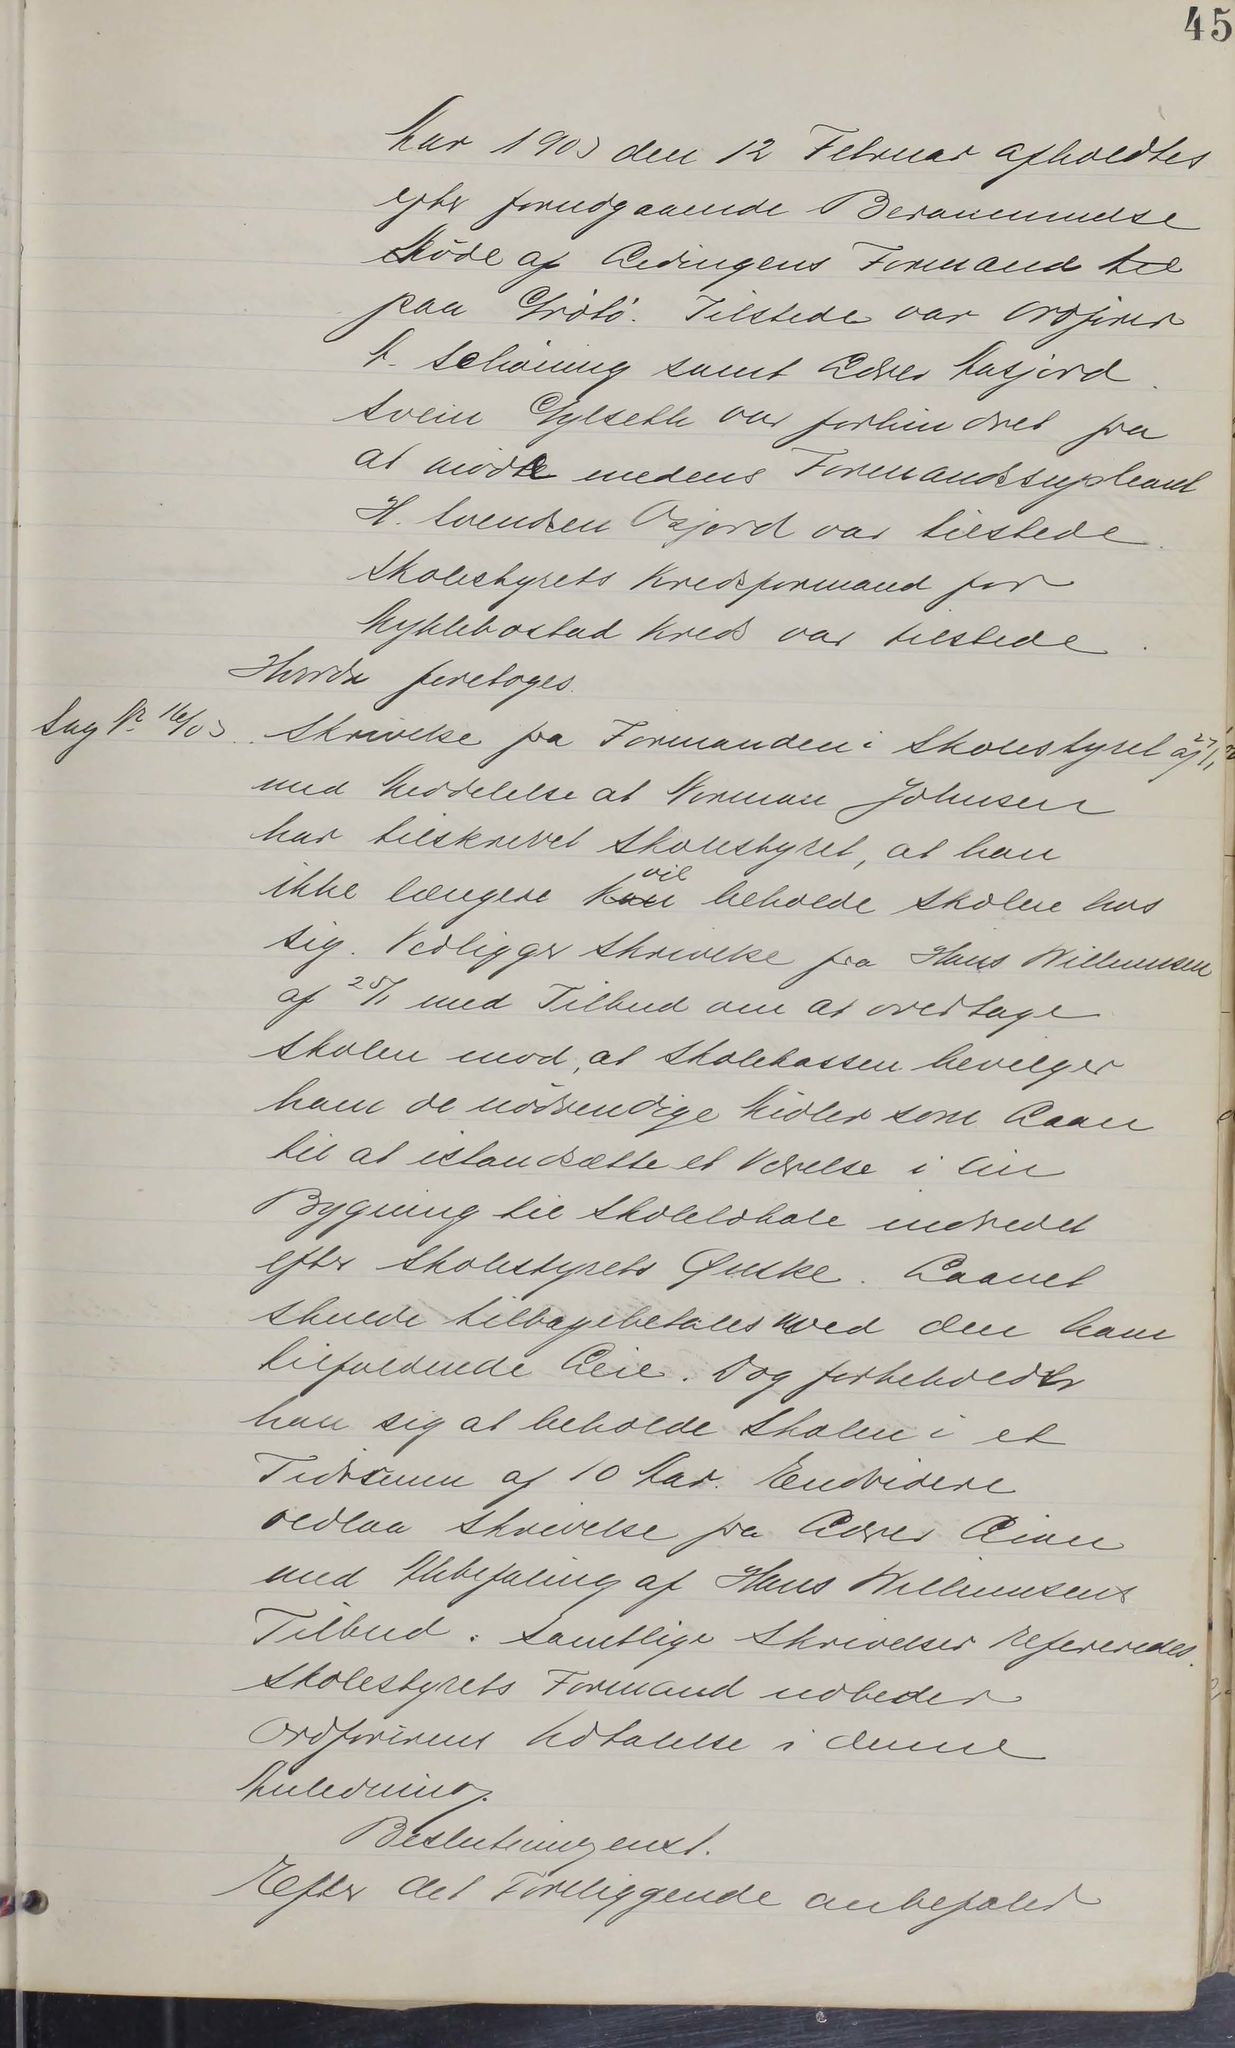 45
Aar 1903 den 12 Februar afholdtes
efter forudgaaende Berammelse
Møde af Ledingens Formand til
paa Grøtø. Tilstede var Ordfører
A. Schøning samt Lærer Aasjord.
Svein Gylseth var forhindret fra
at møde medens Formandssupleant
H. Svendsen Osjord var tilstede.
Skolestyrets Kredsformand for
Myklebostad Kreds var tilstede.
Hvorda foretoges.
Sag Nr 16/03. Skrivelse fra Formanden i Skolestyret af 27/1
med Meddelelse at Norman Johnsen
har tilskrevet Skolestyret, at han
vil
ikke længere kan beholde Skolen hos
sig. Vedligger Skrivelse fra Hans Willumsen
af 25/1 med Tilbud om at overtage
Skolen mod, at Skolekassen bevilger
ham de nødvendige Midler som Laan
til at istandsætte et Værelse i sin
Bygning til Skolelokale indredet
efter Skolestyrets Ønske. Laanet
skulde tilbagebetales med den ham
tilfaldende Leie. Dog forbeholder
han sig at beholde Skolen i et
Tidsrum af 10 Aar. Endvidere
vedlaa Skrivelse fra Lærer
med Anbefaling af Hans Willumsens
Tilbud. Samtlige Skrivelser refereredes.
Skolestyrets Formand udbeder
Ordførerens Udtalelse i denne
Anledning.
Beslutning enst.
Efter det Foreliggende anbefaler